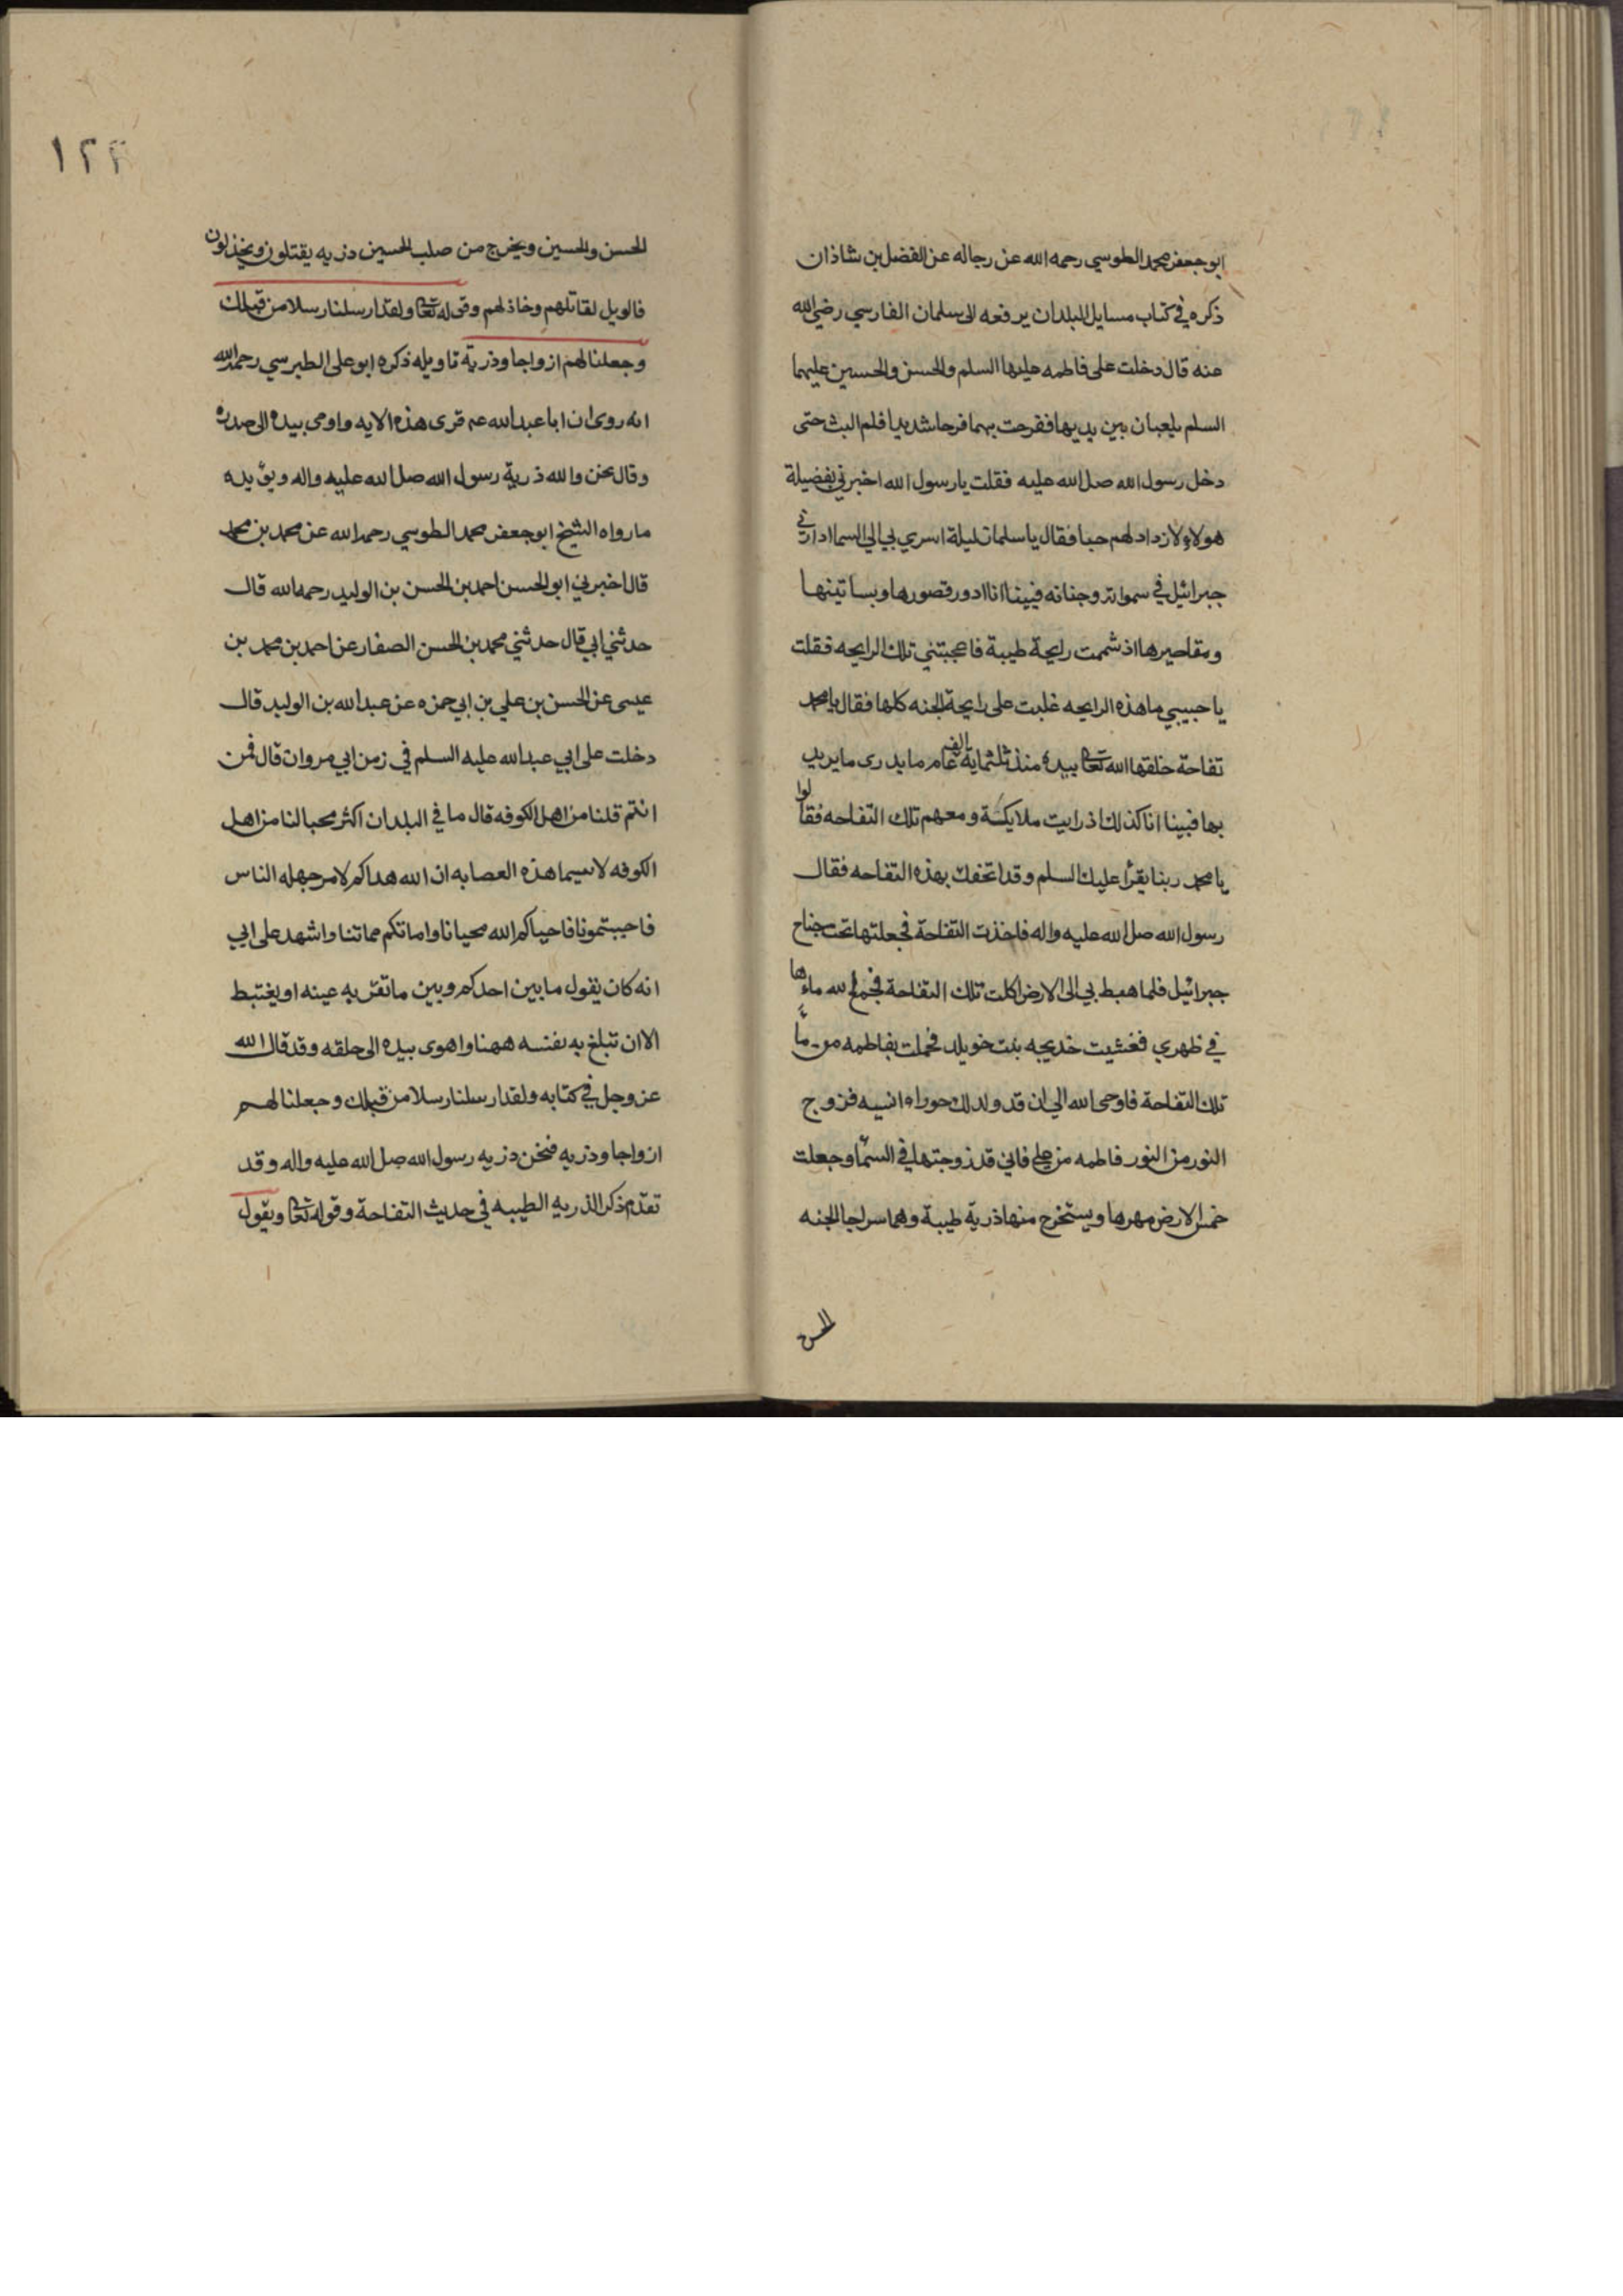 ابو جعفر محمد الطوسي رحمه الله عن رجاله عن الفضل بن شاذان
ذكره في كتاب مسايل البلدان يرفعه الى سلمان الفارسي رضي الله
عنه قال دخلت على فاطمه عليها السلم والحسن والحسين عليهما
السلم يلعبان بين يديها ففرحت بهما فرحا شديدا فلم البث حتى
دخل رسول الله صلى الله عليه فقلت يا رسول الله اخبرني بفضيلة
هولاء لازداد لهم حبا فقال يا سلمان ليلة اسري بي الى السما ادارني
جبرائيل في سمواته وجنانه فبينا انا ادور قصورها وبساتينها
ومقاصيرها اذ شممت رايحة طيبة فاعجبتني تلك الرايحه فقلت
يا حبيبي ما هذه الرايحه غلبت على رايحة الجنه كلها فقال يا محمد
تفاحة خلقها الله تعالى بيده منذ ثلثماية الف عام ما يدرى ما يريد
بها فبينا انا كذلك اذ رايت ملايكة ومعهم تلك التفاحه فقالوا
يا محمد ربنا يقرأ عليك السلم وقد اتحفك بهذه التفاحه فقال
رسول الله صلى الله عليه واله فاخذت التفاحة فجعلتها تحت جناح
جبرائيل فلما هبط بي الى الارض اكلت تلك التفاحة فجمع الله ماءها
في ظهري فغشيت خديجه بنت خويلد فحملت بفاطمه من ماء
تلك التفاحة فاوحى الله الي ان قد ولد لك حوراء انسيه فزوج
النور من النور فاطمه من علي فاني قد زوجتها في السماء وجعلت
خمس الارض مهرها ويستخرج منها ذرية طيبة وهما سراجا الجنه
الحسن
١٢٢
الحسن والحسين ويخرج من صلب الحسين ذريه يقتلون ويخذلون
فالويل لقاتلهم وخاذلهم وقوله تعالى ولقد ارسلنا رسلا من قبلك
وجعلنا لهم ازواجا وذرية تاويله ذكره ابو على الطبرسي رحمه الله
انه روى ان ابا عبد الله عم قرى هذه الايه واومى بيده الى صدره
وقال نحن والله ذرية رسول الله صلى الله عليه واله ويؤيده
ما رواه الشيخ ابو جعفر محمد الطوسي رحمه الله عن محمد بن محمد
قال اخبرني ابو الحسن احمد بن الحسن بن الوليد رحمه الله قال
حدثني ابي قال حدثني محمد بن الحسن الصفار عن احمد بن محمد بن
عيسى عن الحسن بن علي بن ابي حمزه عن عبد الله بن الوليد قال
دخلت على ابي عبد الله عليه السلم في زمن ابي مروان قال فمن
انتم قلنا من اهل الكوفه قال ما في البلدان اكثر محبا لنا من اهل
الكوفه لاسيما هذه العصابه ان الله هداكم لامر جهله الناس
فاحببتمونا فاحياكم الله محيانا واماتكم مماتنا واشهد على ابي
انه كان يقول ما بين احدكم وبين ما تقر به عينه او يغتبط
الا ان تبلغ به نفسه ههنا واهوى بيده الى حلقه وقد قال الله
عز وجل في كتابه ولقد ارسلنا رسلا من قبلك وجعلنا لهم
ازواجا وذريه فنحن ذريه رسول الله صلى الله عليه واله وقد
تقدم ذكر الذريه الطيبه في حديث التفاحة وقوله تعالى ويقول